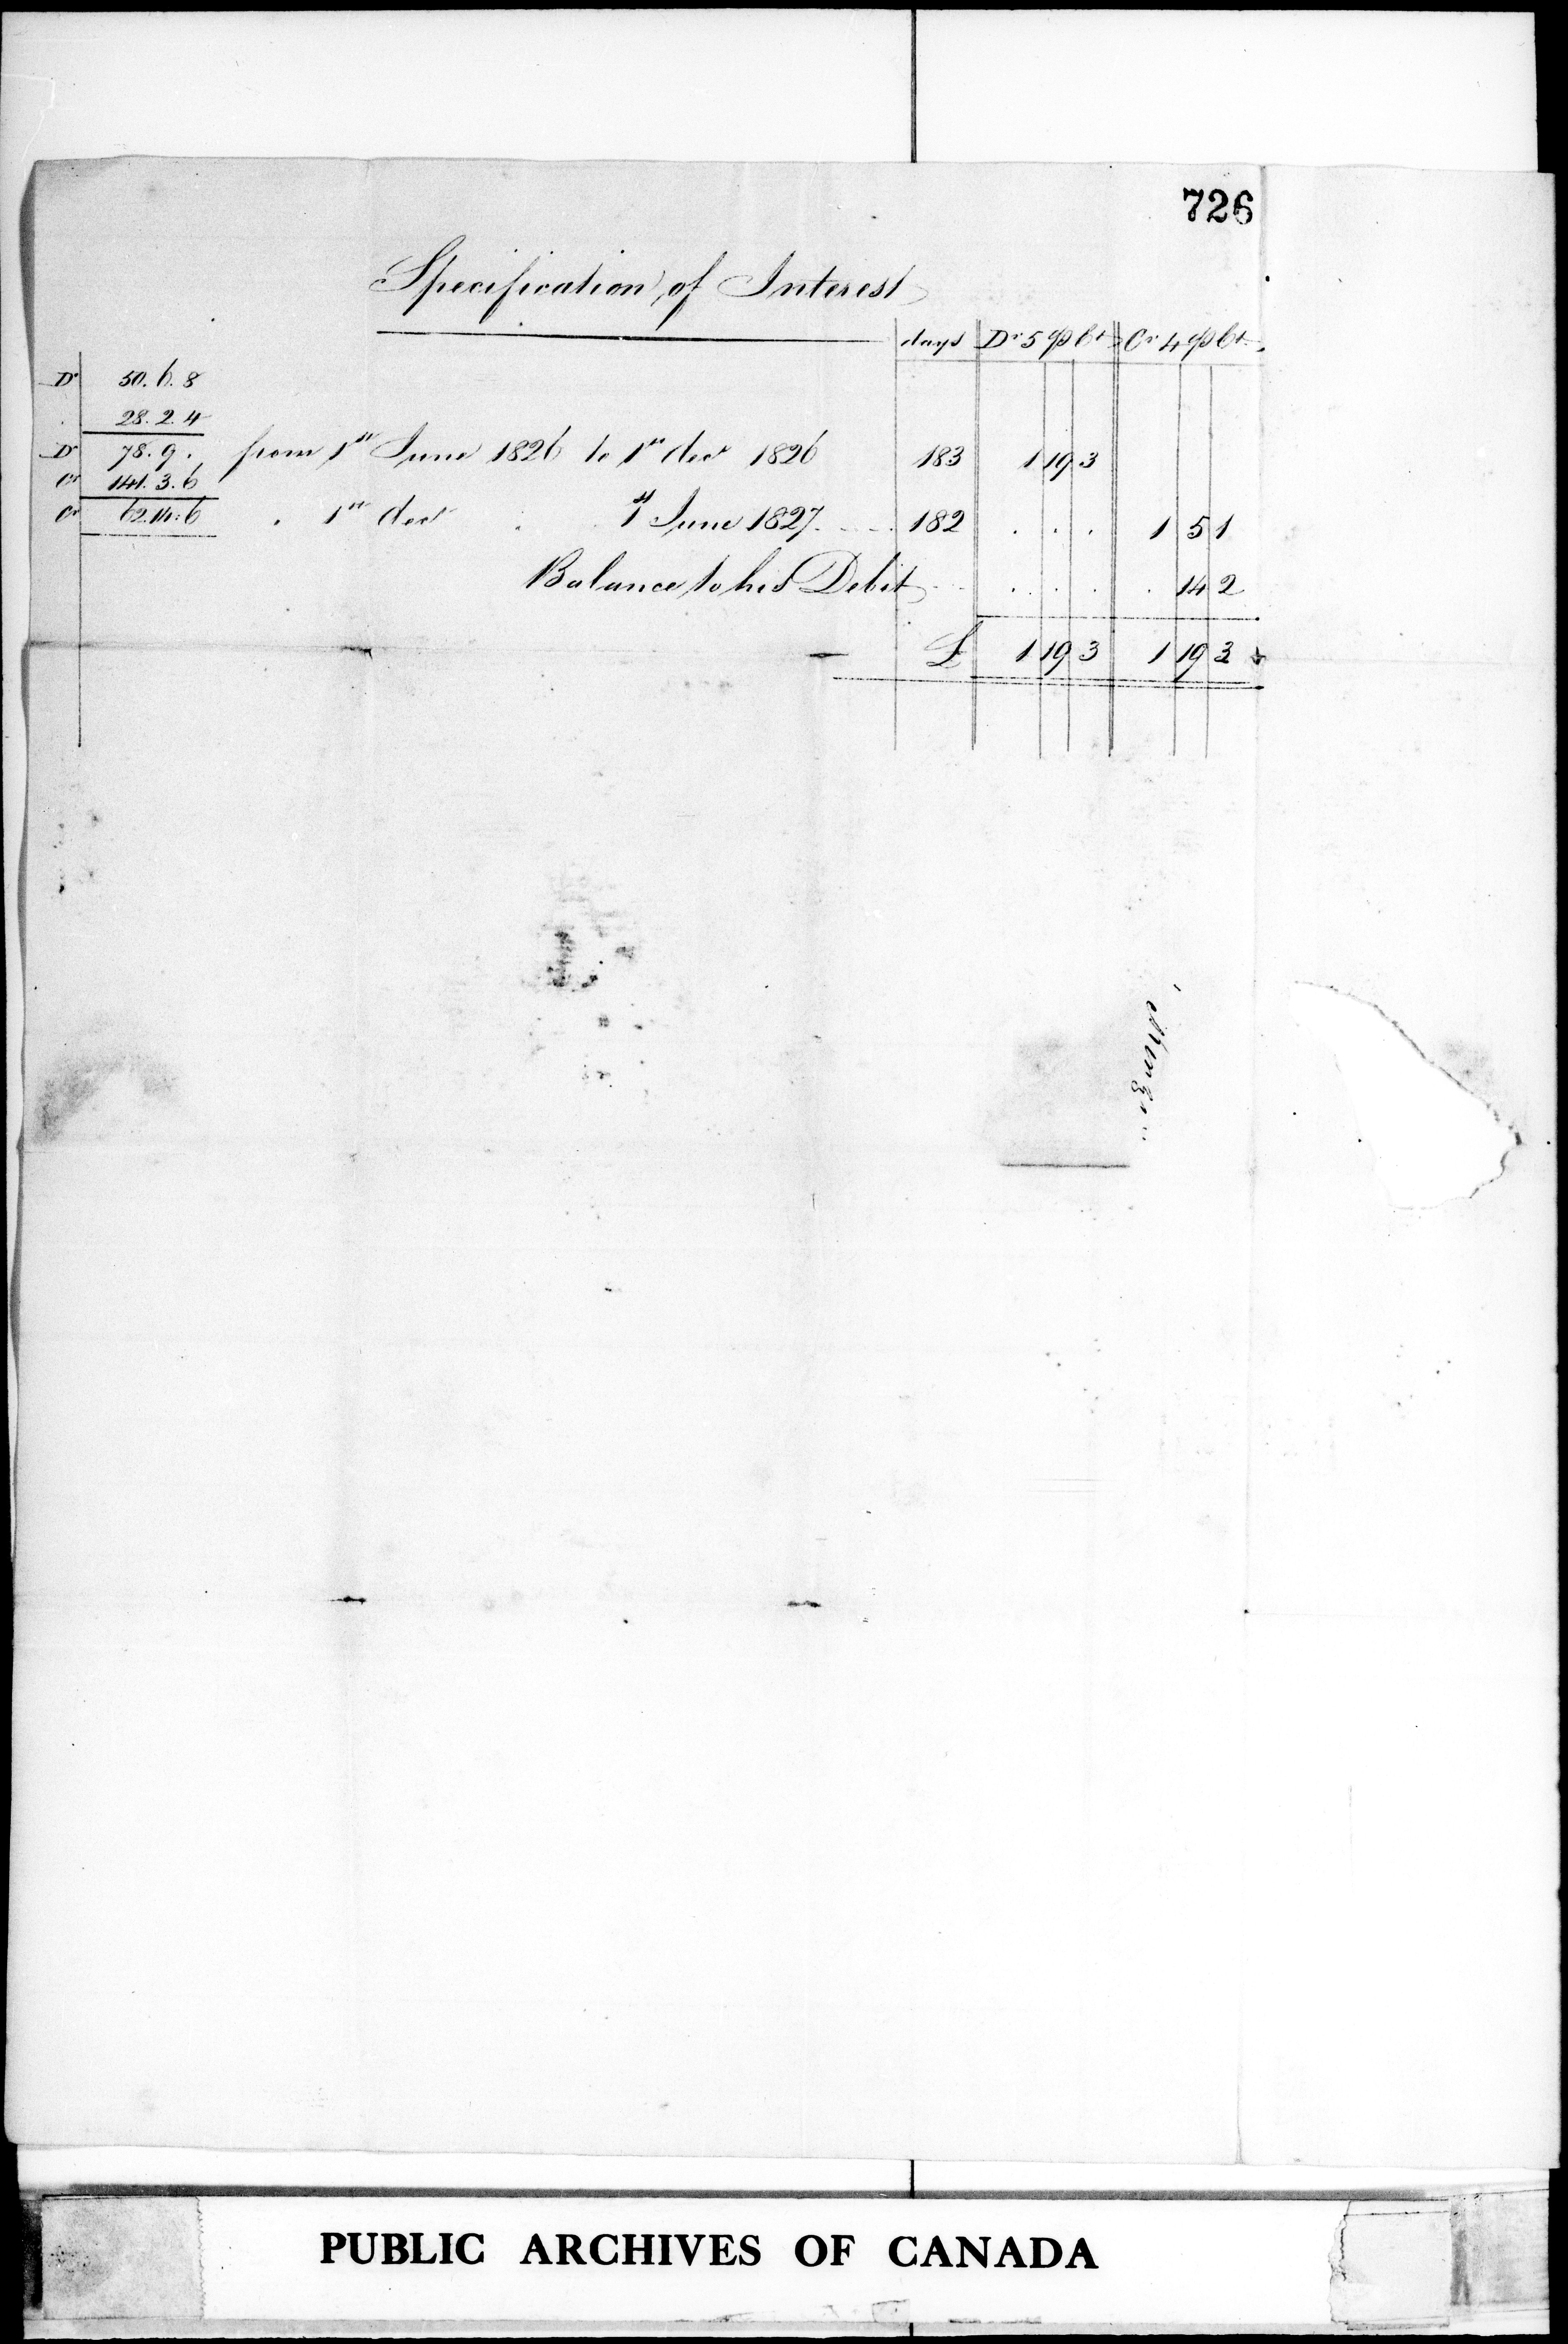 726
Specification of Interest
days Dr 5 ⅌ Ct Cr 4 ⅌ Ct
Dr 50. 6. 8
28. 2. 4
Dr 78. 9. from 1st June 1826 to 1st decr 1826 183 1 19 3
Cr 141. 3. 6
Cr 62. 14: 6 . 1st decr . 1st June 1827 . . . . 182 . . . 1 5 1
Balance to his Debit . . . . . . 14 2
£ 1 19 3 1 19 3
PUBLIC ARCHIVES OF CANADA